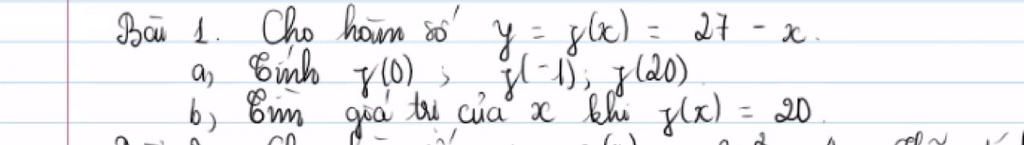 Bài 1. Cho hàm số y = f(x) = 27 - x.
a, Tính f(0) ; f(-1); f(20)
b, Tìm giá trị của x khi f(x) = 20.